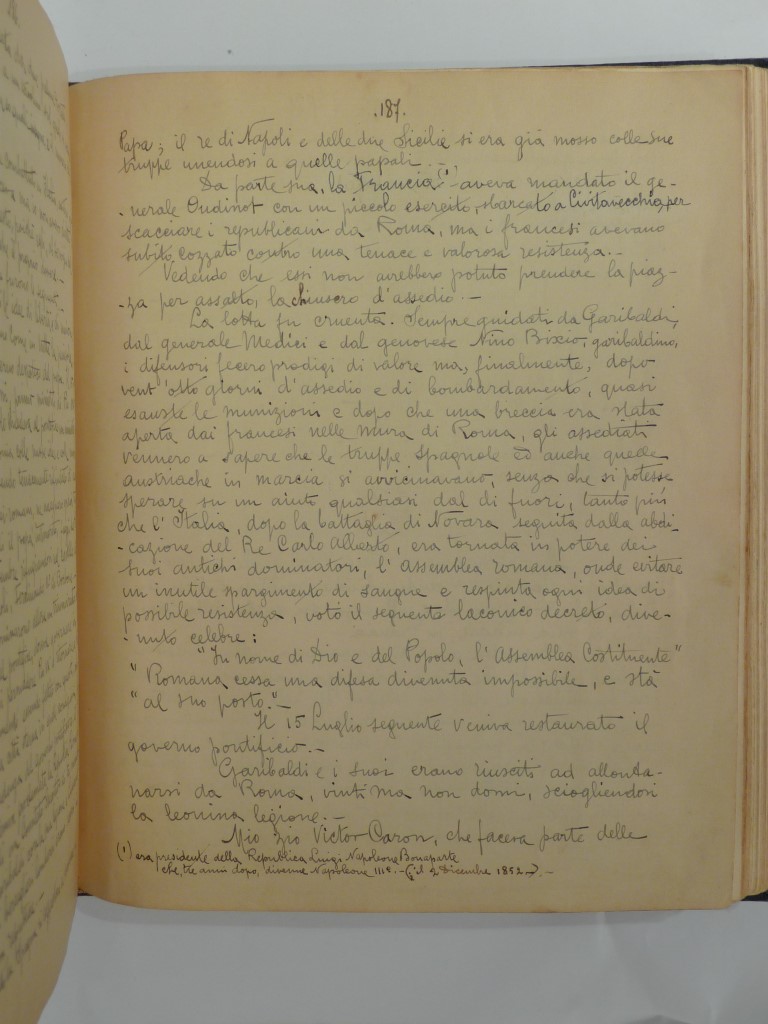 .187.
Papa; il re di Napoli e delle due Sicilie si era già mosso colle sue
truppe unendosi a quelle papali. —
Da parte sua, la Francia (1) aveva mandato il ge-
-nerale Oudinot con un piccolo esercito, sbarcato a Civitavecchia, per
scacciare i republicani da Roma, ma i francesi avevano
subito cozzato contro una tenace e valorosa resistenza. —
Vedendo che essi non avrebbero potuto prendere la piaz-
-za per assalto, la chiusero d'assedio. —
La lotta fu cruenta. Sempre guidati da Garibaldi,
dal generale Medici e dal genovese Nino Bixio, garibaldino,
i difensori fecero prodigi di valore ma, finalmente, dopo
vent'otto giorni d'assedio e di bombardamento, quasi
esauste le munizioni e dopo che una breccia era stata
aperta dai francesi nelle mura di Roma, gli assediati
vennero a sapere che le truppe spagnole ed anche quelle
austriache in marcia si avvicinavano, senza che si potesse
sperare su un aiuto qualsiasi dal di fuori, tanto più
che l'Italia, dopo la battaglia di Novara seguita dalla abdi-
-cazione del Re Carlo Alberto, era tornata in potere dei
suoi antichi dominatori, l'Assemblea romana, onde evitare
un inutile spargimento di sangue e respinta ogni idea di
possibile resistenza, votò il seguente laconico decreto, dive-
-nuto celebre:
"In nome di Dio e del Popolo, l'Assemblea Costituente"
"Romana cessa una difesa divenuta impossibile, e stà
"al suo posto." —
Il 15 Luglio seguente veniva restaurato il
governo pontificio. —
Garibaldi e i suoi erano riusciti ad allonta-
narsi da Roma, vinti ma non domi, sciogliendosi
la leonina legione. —
Mio zio Victor Caron, che faceva parte delle
(1) era presidente della Republica Luigi Napoleone Bonaparte
che, tre anni dopo, divenne Napoleone IIIº. — (il 2 Dicembre 1852). —